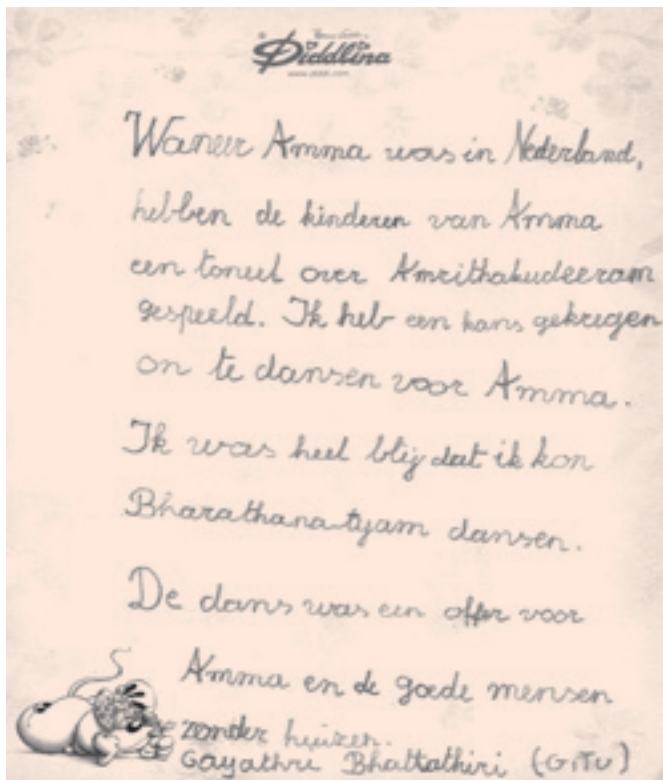 Diddlina
www.diddl.com
Waneer Amma was in Nederland,
hebben de kinderen van Amma
een toneel over Amrithakudeeram
gespeeld. Ik heb een kans gekregen
on te dansen voor Amma.
Ik was heel blij dat ik kon
Bharathana-tyam dansen.
De dans was een offer voor
Amma en de goede mensen
zonder huizen.
Gayathri Bhattathiri (GITU)